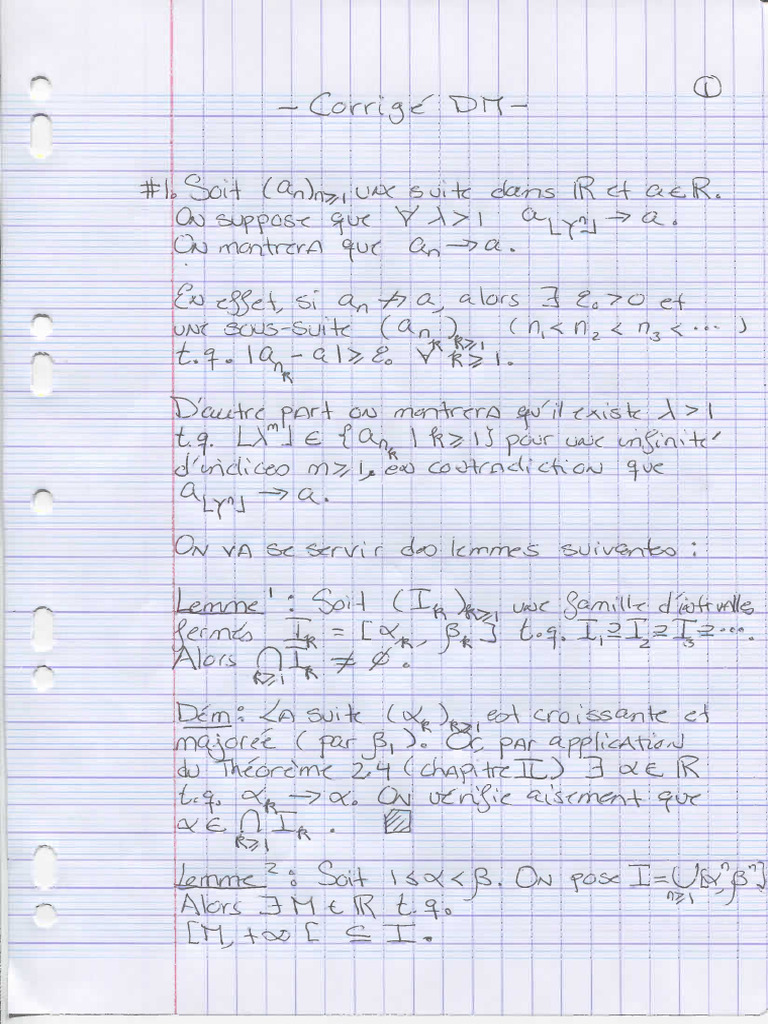 ①
- Corrigé DM -
#1. Soit (aₙ)ₙ≥₁ une suite dans ℝ et a∈ℝ.
On suppose que ∀ λ>1 a_⌊γⁿ⌋ → a.
On montrera que aₙ → a.
En effet, si aₙ ↛ a, alors ∃ ε₀>0 et
une sous-suite (a_{n_k})_{k≥1} (n₁ < n₂ < n₃ < ⋯ )
t.q. |a_{n_k} - a| ≥ ε₀ ∀ k ≥ 1.
D'autre part on montrera qu'il existe λ>1
t.q. ⌊λᵐ⌋ ∈ {a_{n_k} | k≥1} pour une infinité
d'indices m≥1, en contradiction que
a_⌊γⁿ⌋ → a.
On va se servir des lemmes suivantes :
Lemme 1 : Soit (I_k)_{k≥1} une famille d'intervalles
fermés I_k = [α_k, β_k] t.q. I₁⊇I₂⊇I₃⊇⋯.
Alors ⋂_{k≥1} I_k ≠ ∅.
Dém : La suite (α_k)_{k≥1} est croissante et
majorée (par β₁). Or, par application
du Théorème 2.4 (chapitre II) ∃ α∈ℝ
t.q. α_k → α. On vérifie aisement que
α ∈ ⋂_{k≥1} I_k .
Lemme 2 : Soit 1≤α<β. On pose I = ⋃_{n≥1} [αⁿ, βⁿ]
Alors ∃ M ∈ ℝ t.q.
[M, +∞ [ ⊆ I.